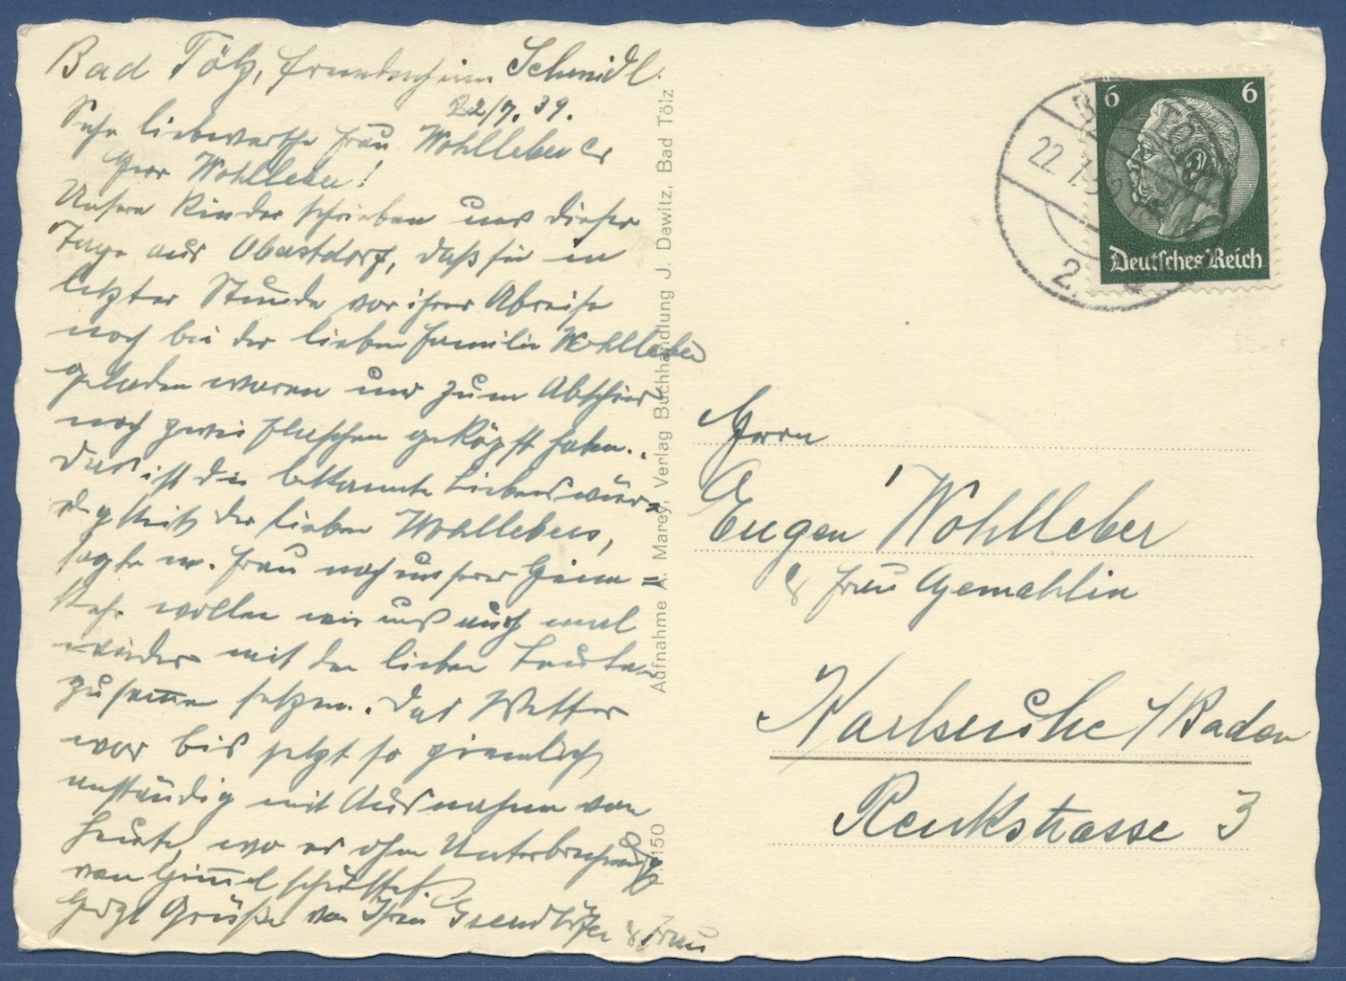 Bad Tölz, Fremdenheim Schmidl.
22/7.39.
Sehr liebwerthe Frau Wohlleber &
Herr Wohlleber!
Unsere Kinder schrieben uns dieser
Tage aus Obastdorf, daß sie in
letzter Stunde vor ihrer Abreise
noch bei der lieben Familie Wohlleber
geladen waren und zum Abschied
noch zwei Flaschen geköpft haben.
Das ist die bekannte Liebenswür=
digkeit der lieben Wohllebers,
sagte m. Frau nach unserer Heim=
kehr wollen wir uns auch mal
wieder mit den lieben Leuten
zusammen setzen. Das Wetter
war bis jetzt so ziemlich
anständig mit Ausnahme von
heute, wo es ohne Unterbrechung
vom Himmel schüttet.
Herzl Grüße von Ihren & Frau
Aufnahme A. Marey, Verlag Buchhandlung J. Dawitz, Bad Tölz
150
6 6
Deutsches Reich
22.7.39
2.
Herrn
Eugen Wohlleber
& Frau Gemahlin
Karlsruhe /Baden
Renkstrasse 3